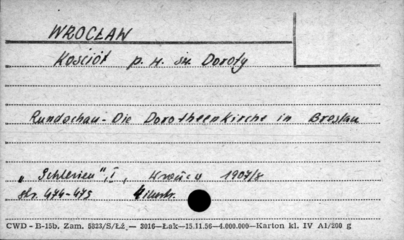 WROCŁAW
Kościół p. w. św. Doroty
Rundschau - Die Dorotheenkirche in Breslau
"Schlesien", I, 1907/8
str. 474-475 4 ilustr.
CWD - B-15b. Zam. 5323/S/Łż, — 2016—Łak—15.11.56—4.000.000—Karton kl. IV A1/200 g